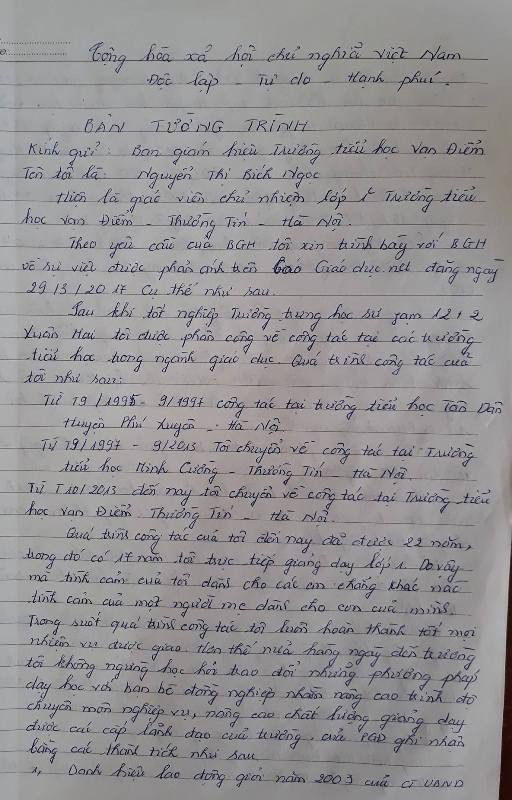 Cộng hòa xã hội chủ nghĩa việt Nam
Độc lập - Tự do - Hạnh phúc.
BẢN TƯỜNG TRÌNH
Kính gửi: Ban giám hiệu Trường tiểu học Vạn Điểm
Tên tôi là: Nguyễn Thị Bích Ngọc
Hiện là giáo viên chủ nhiệm lớp 1 Trường tiểu
học Vạn Điểm - Thường Tín - Hà Nội.
Theo yêu cầu của BGH tôi xin trình bày với BGH
về sự việc được phản ánh trên báo Giáo dục.net đăng ngày
29/3/2017 Cụ thể như sau.
Sau khi tốt nghiệp Trường trung học sư phạm 12+2
Xuân Mai tôi được phân công về công tác tại các trường
tiểu học trong ngành giáo dục. Quá trình công tác của
tôi như sau:
Từ T9/1995 - 9/1997 công tác tại trường tiểu học Tân Dân
Huyện Phú Xuyên - Hà Nội
Từ T9/1997 - 9/2013 Tôi chuyển về công tác tại Trường
tiểu học Minh Cường - Thường Tín - Hà Nội.
Từ T10/2013 đến nay tôi chuyển về công tác tại Trường tiểu
học Vạn Điểm Thường Tín - Hà Nội.
Quá trình công tác của tôi đến nay đã được 22 năm,
trong đó có 17 năm tôi trực tiếp giảng dạy lớp 1. Do vậy
mà tình cảm của tôi dành cho các em chẳng khác nào
tình cảm của một người mẹ dành cho con của mình.
Trong suốt quá trình công tác tôi luôn hoàn thành tốt mọi
nhiệm vụ được giao. Hơn thế nữa hàng ngày đến trường
tôi không ngừng học hỏi trao đổi những phương pháp
dạy học với bạn bè đồng nghiệp nhằm nâng cao trình độ
chuyên môn nghiệp vụ, nâng cao chất lượng giảng dạy
được các cấp lãnh đạo của trường, của PGD ghi nhận
bằng các thành tích như sau
1, Danh hiệu lao động giỏi năm 2003 của CT UBND